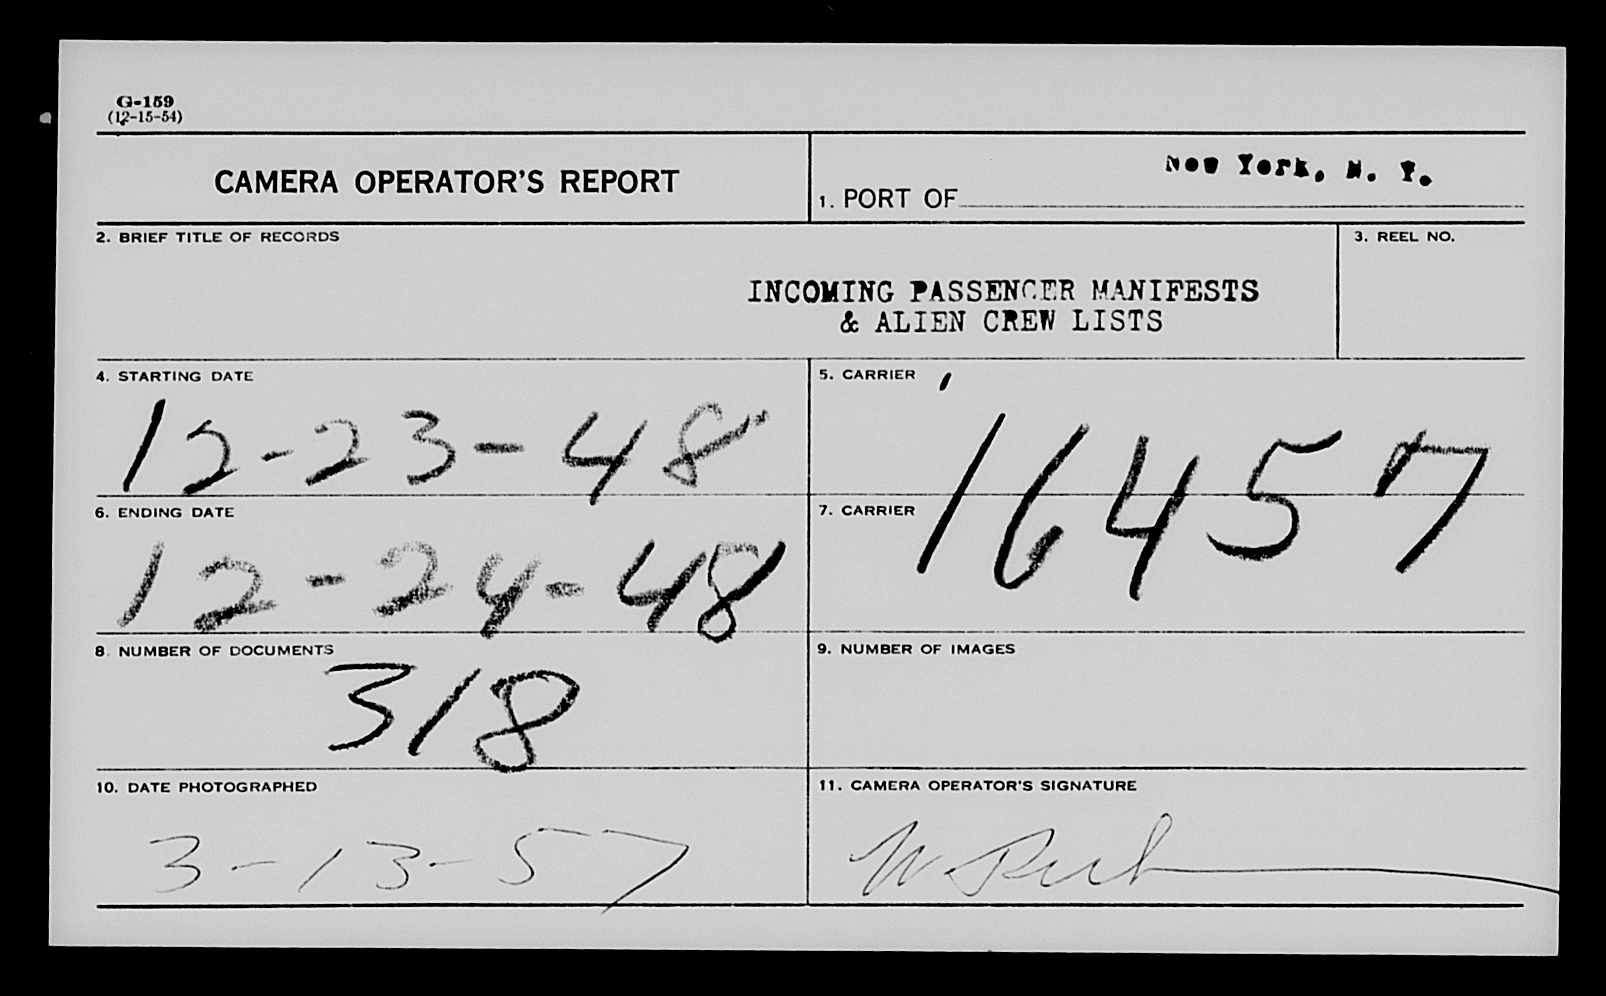 G-159
(12-15-54)
CAMERA OPERATOR'S REPORT
1. PORT OF New York, N. Y.
2. BRIEF TITLE OF RECORDS
3. REEL NO.
INCOMING PASSENGER MANIFESTS
& ALIEN CREW LISTS
4. STARTING DATE
12-23-48
5. CARRIER
16457
6. ENDING DATE
12-24-48
7. CARRIER
8. NUMBER OF DOCUMENTS
318
9. NUMBER OF IMAGES
10. DATE PHOTOGRAPHED
3-13-57
11. CAMERA OPERATOR'S SIGNATURE